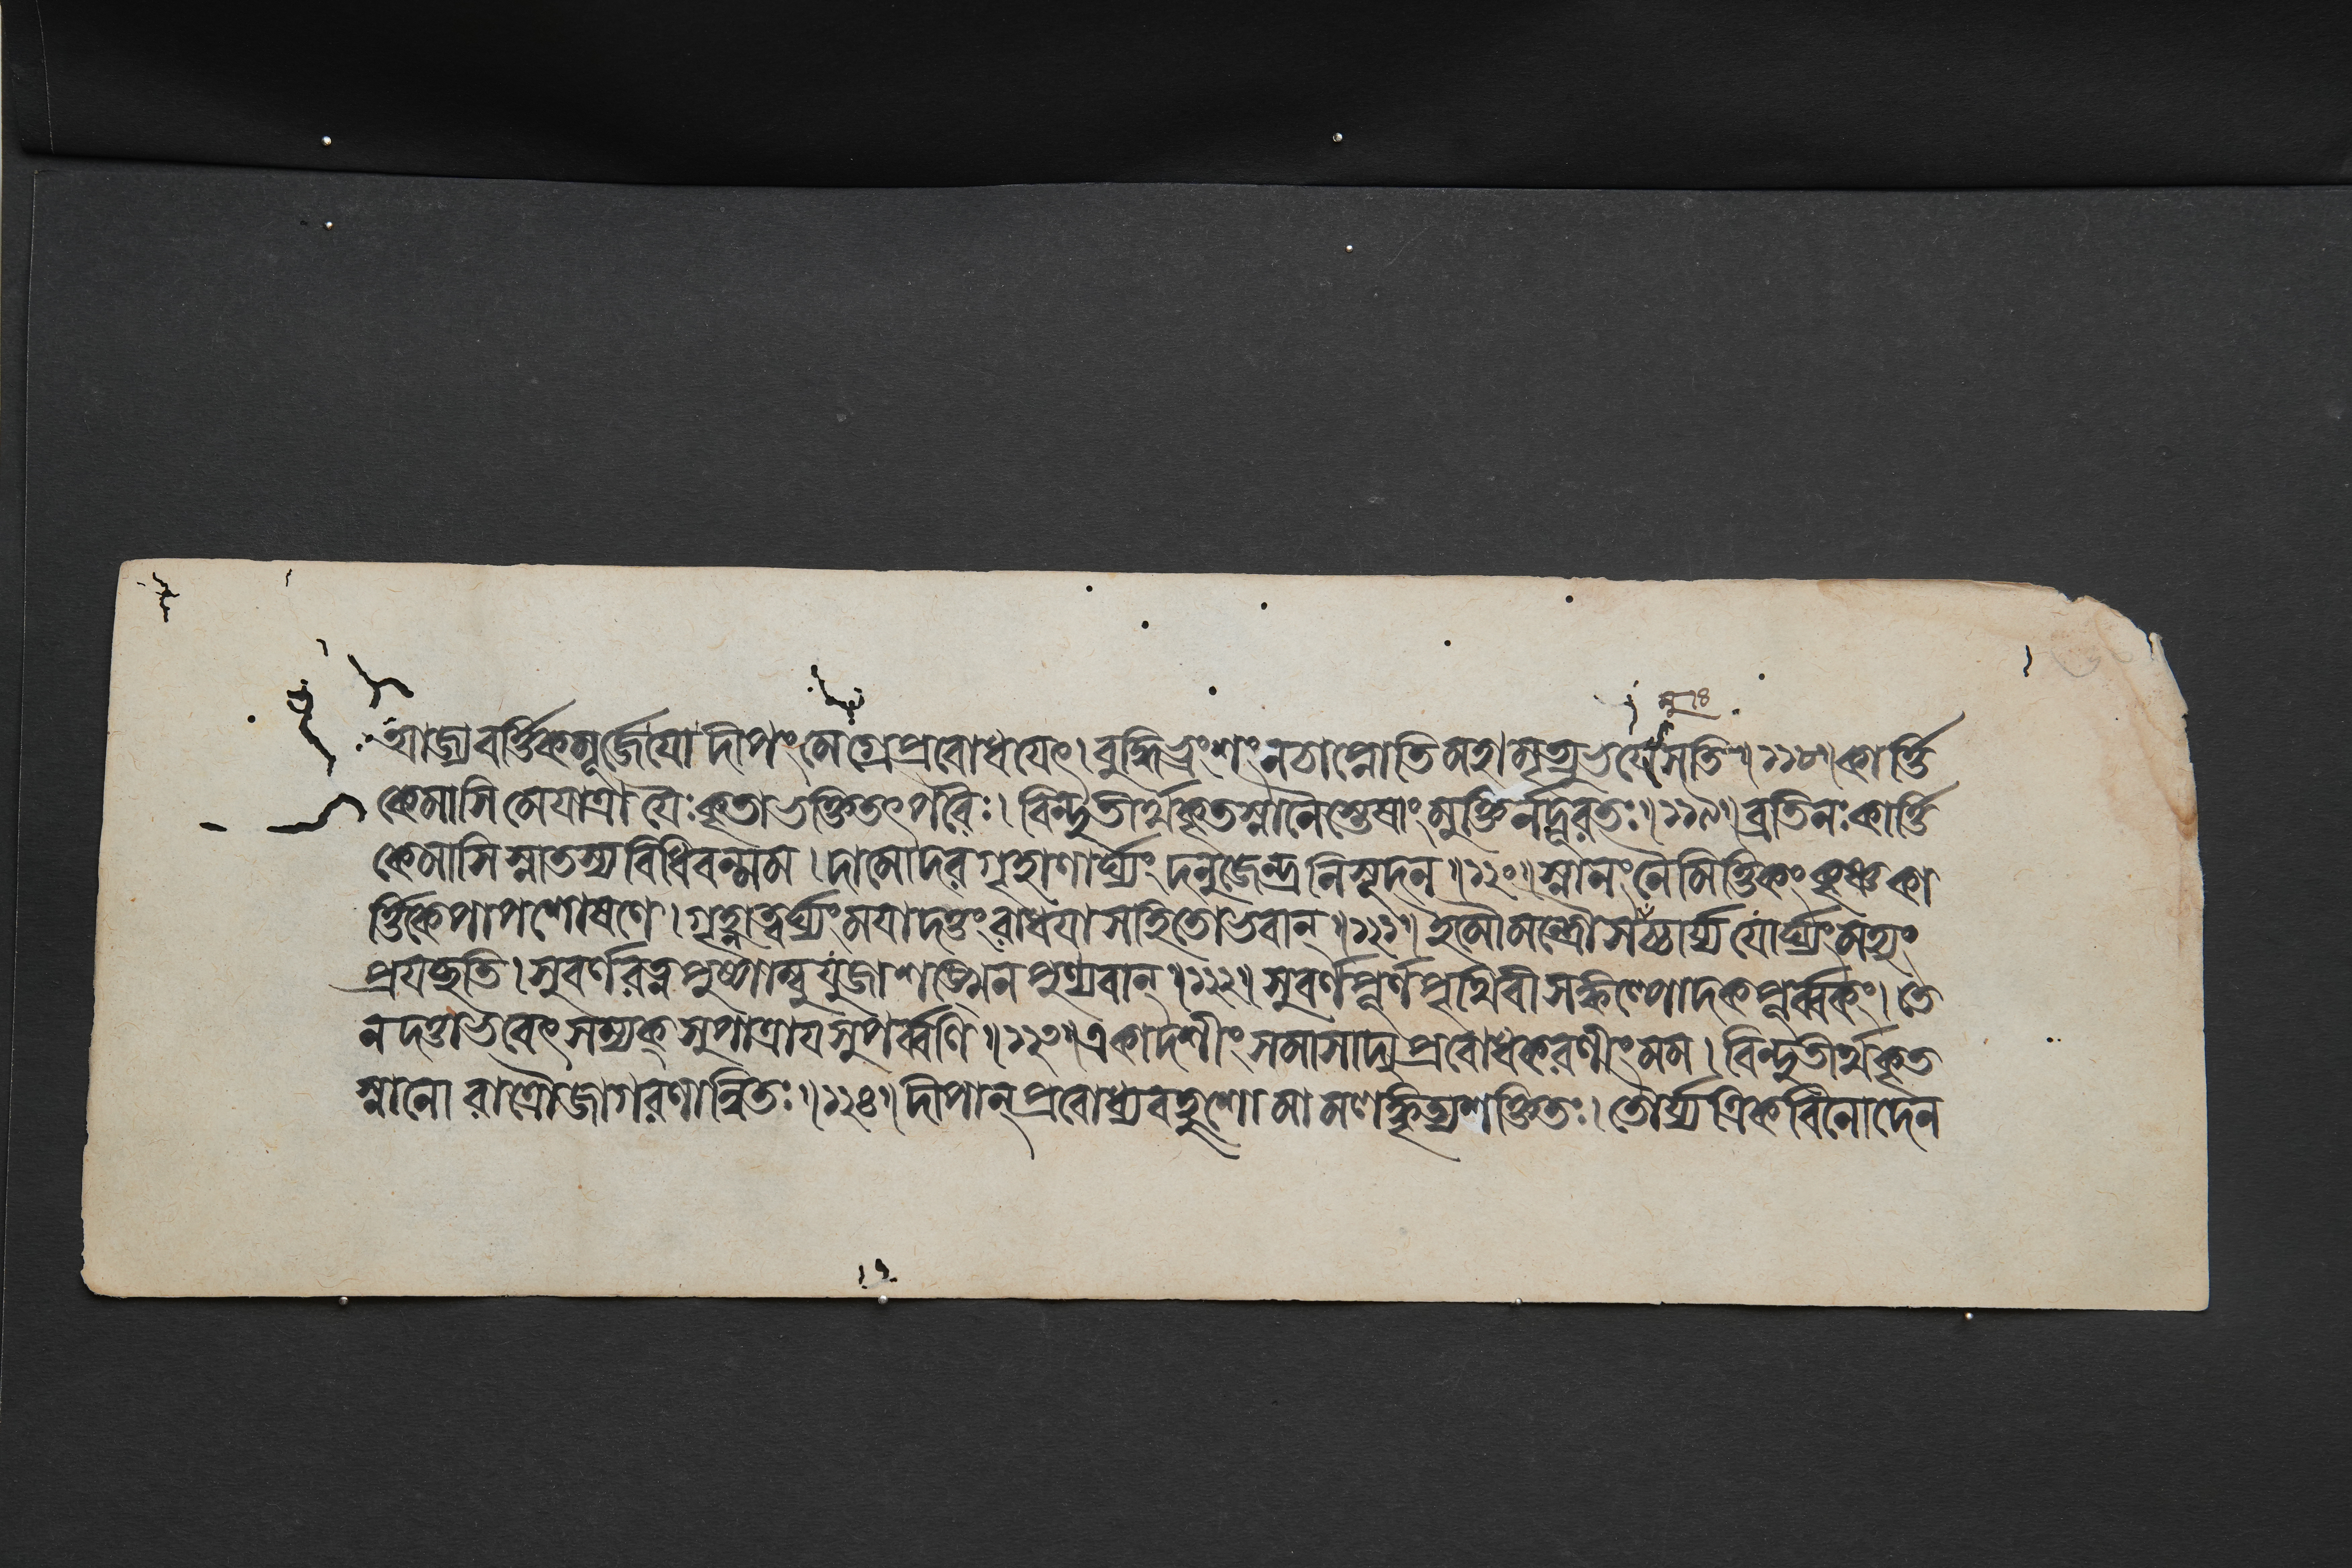 আজ্যবর্ত্তিকমূর্জেযো দীপংমেগ্রেপ্রবোধযেৎ। বুদ্ধিভ্রংশংনচাপ্নোতি মহামৃত্যুভযেসতি॥১১৮॥কার্ত্তি
কেমাসি মেযাত্রা যৈঃকৃতাভক্তিতৎপরৈঃ। বিন্দুতীর্থকৃতস্নানৈস্তেষাংমুক্তির্নদূরতঃ॥১১৯॥ব্রতিনঃকার্ত্তি
কেমাসি স্নাতস্যবিধিবন্মম। দামোদর গৃহাণার্ঘ্যং দনুজেন্দ্রনিসূদন॥১২০॥স্নানংনৈমিত্তিকংকৃষ্ণকা
র্ত্তিকেপাপশোষণে। গৃহ্ণাত্বর্ঘ্যংমযাদত্তংরাধযাসহিতোভবান্॥১২১॥ইমৌমন্ত্রৌসমুচ্চার্য্যযোর্ঘ্যংমহ্যং
প্রযচ্ছতি। সুবর্ণরত্নপুষ্পাম্বুযুজাশঙ্খেনপুণ্যবান্॥১২২॥সুবর্ণপূর্ণপৃথিবীসঙ্কল্পোদকপূর্ব্বকং। তে
ন দত্তাভবেৎসম্যক্ সুপাত্রাযসুপর্ব্বণি॥১২৩॥একাদশীংসমাসাদ্য প্রবোধকরণীংমম। বিন্দুতীর্থকৃত
স্নানো রাত্রৌজাগরণান্বিতঃ॥১২৪॥দীপান্ প্রবোধ্যবহুশো মামলঙ্কৃত্যশক্তিতঃ। তৌর্য্যত্রিকবিনোদেন